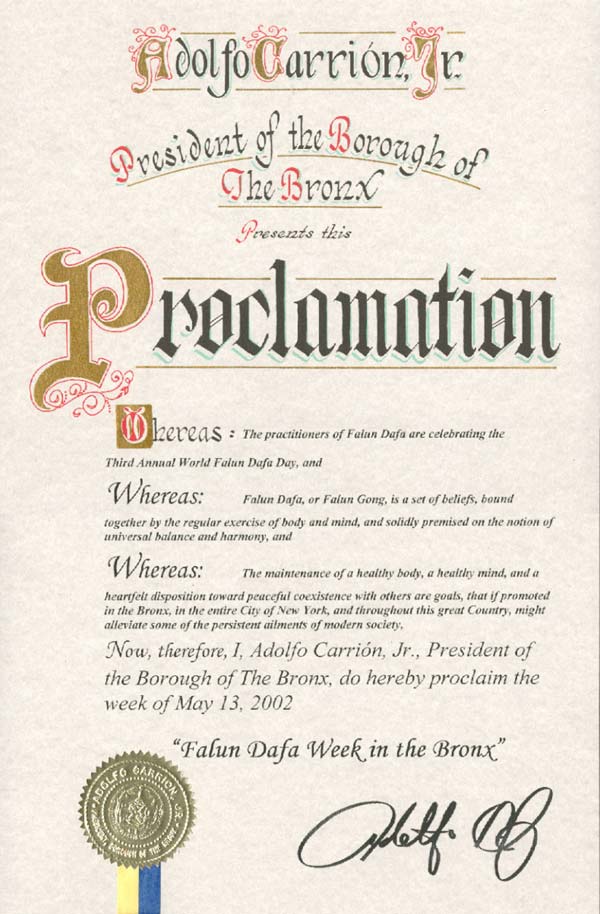 Adolfo Carrión, Jr.
President of the Borough of
The Bronx
Presents this
Proclamation
Whereas : The practitioners of Falun Dafa are celebrating the
Third Annual World Falun Dafa Day, and
Whereas: Falun Dafa, or Falun Gong, is a set of beliefs, bound
together by the regular exercise of body and mind, and solidly premised on the notion of
universal balance and harmony, and
Whereas: The maintenance of a healthy body, a healthy mind, and a
heartfelt disposition toward peaceful coexistence with others are goals, that if promoted
in the Bronx, in the entire City of New York, and throughout this great Country, might
alleviate some of the persistent ailments of modern society,
Now, therefore, I, Adolfo Carrión, Jr., President of
the Borough of The Bronx, do hereby proclaim the
week of May 13, 2002
“Falun Dafa Week in the Bronx”
ADOLFO CARRION, JR.